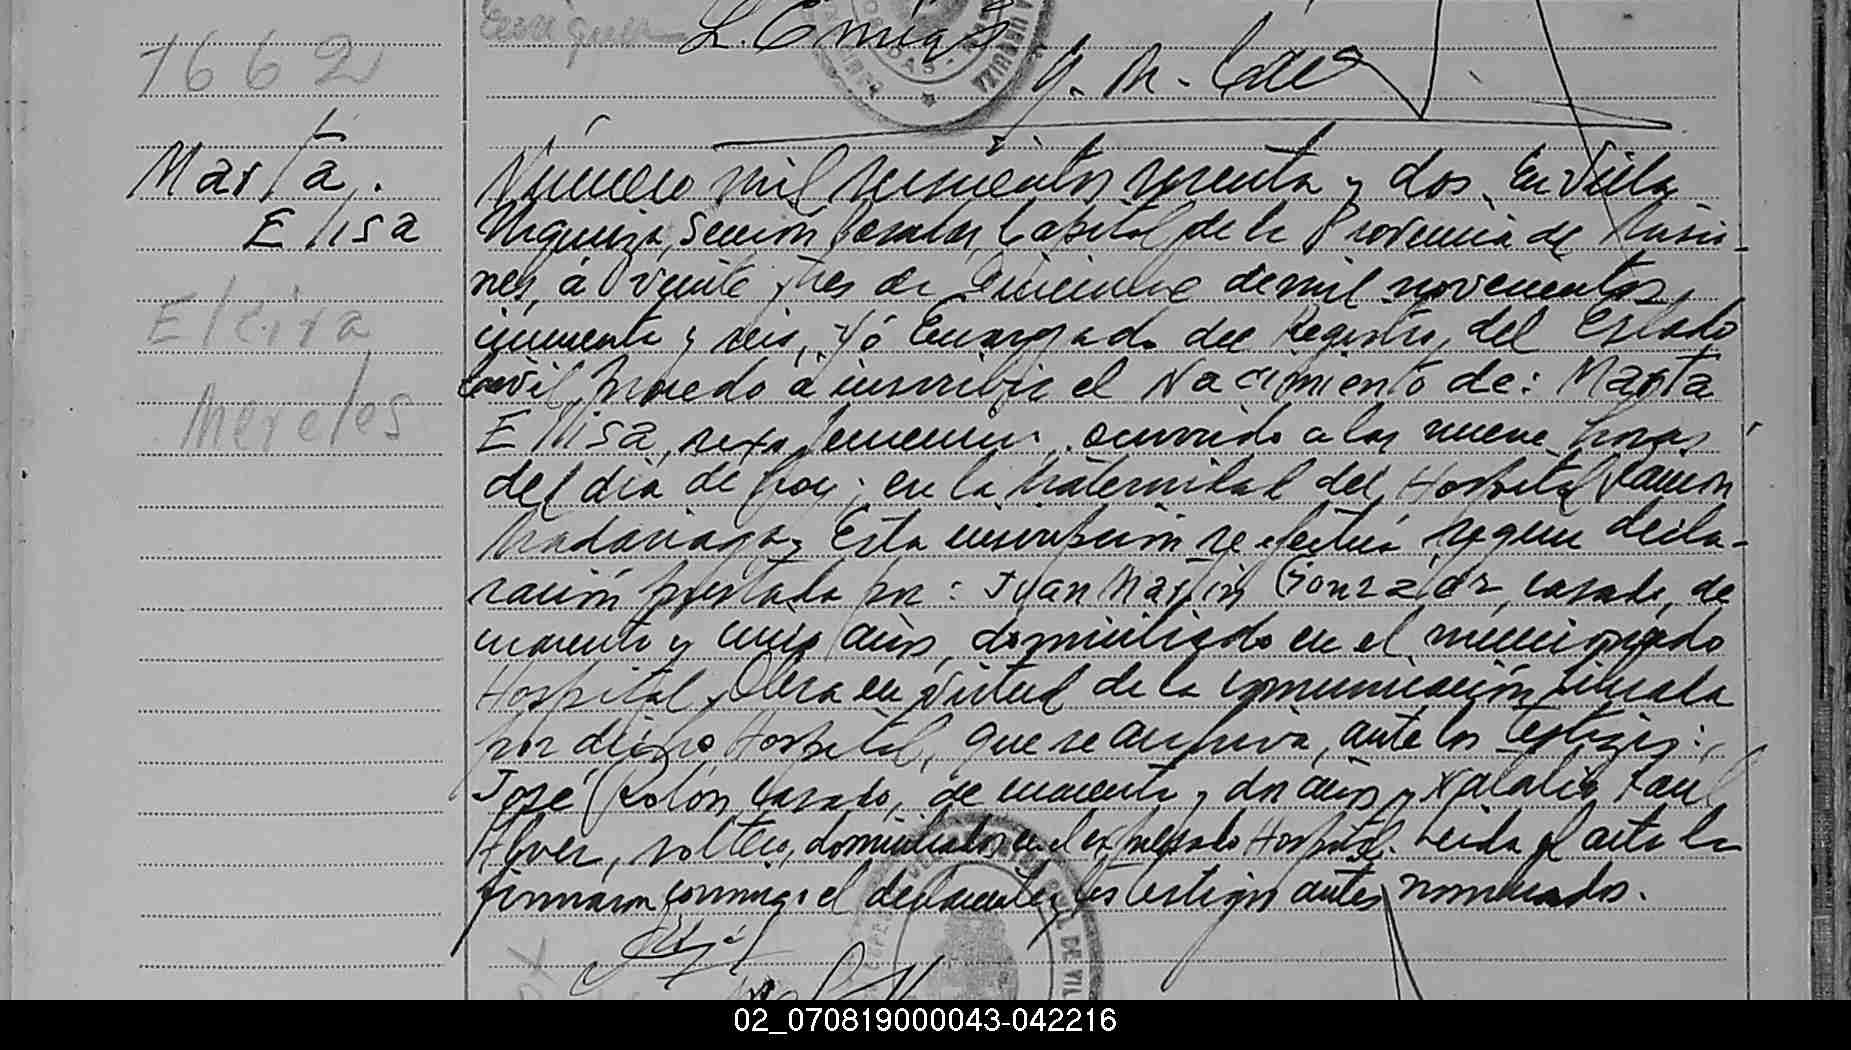 L. Enriq
1662
Marta
Elisa
Elcira
Mereles
Número mil seiscientos sesenta y dos. En Villa
Urquiza, Sección Posadas, Capital de la Provincia de Misio-
nes, á veinte y tres de Diciembre de mil novecientos
cincuenta y seis, Yó Encargado del Registro, del Estado
Civil, procedo á inscribir el Nacimiento de: Marta
Elisa, sexo femenino, ocurrido a las nueve horas
del día de hoy; en la Maternidad del Hospital Ramón
Madariaga, Esta inscripción se efectúa según decla-
ración prestada por: Juan Martin González, casado, de
cuarenta y cinco años, domiciliado en el mencionado
Hospital. Obra en virtud de la comunicación librada
por dicho Hospital, que se archiva, ante los testigos:
José Rolón, casado, de cuarenta y dos años y Natalio Raul
Alvez, soltero, domiciliados en el expresado Hospital. Leida el acta la
firmaron conmigo el declarante y los testigos antes nombrados.
02_070819000043-042216